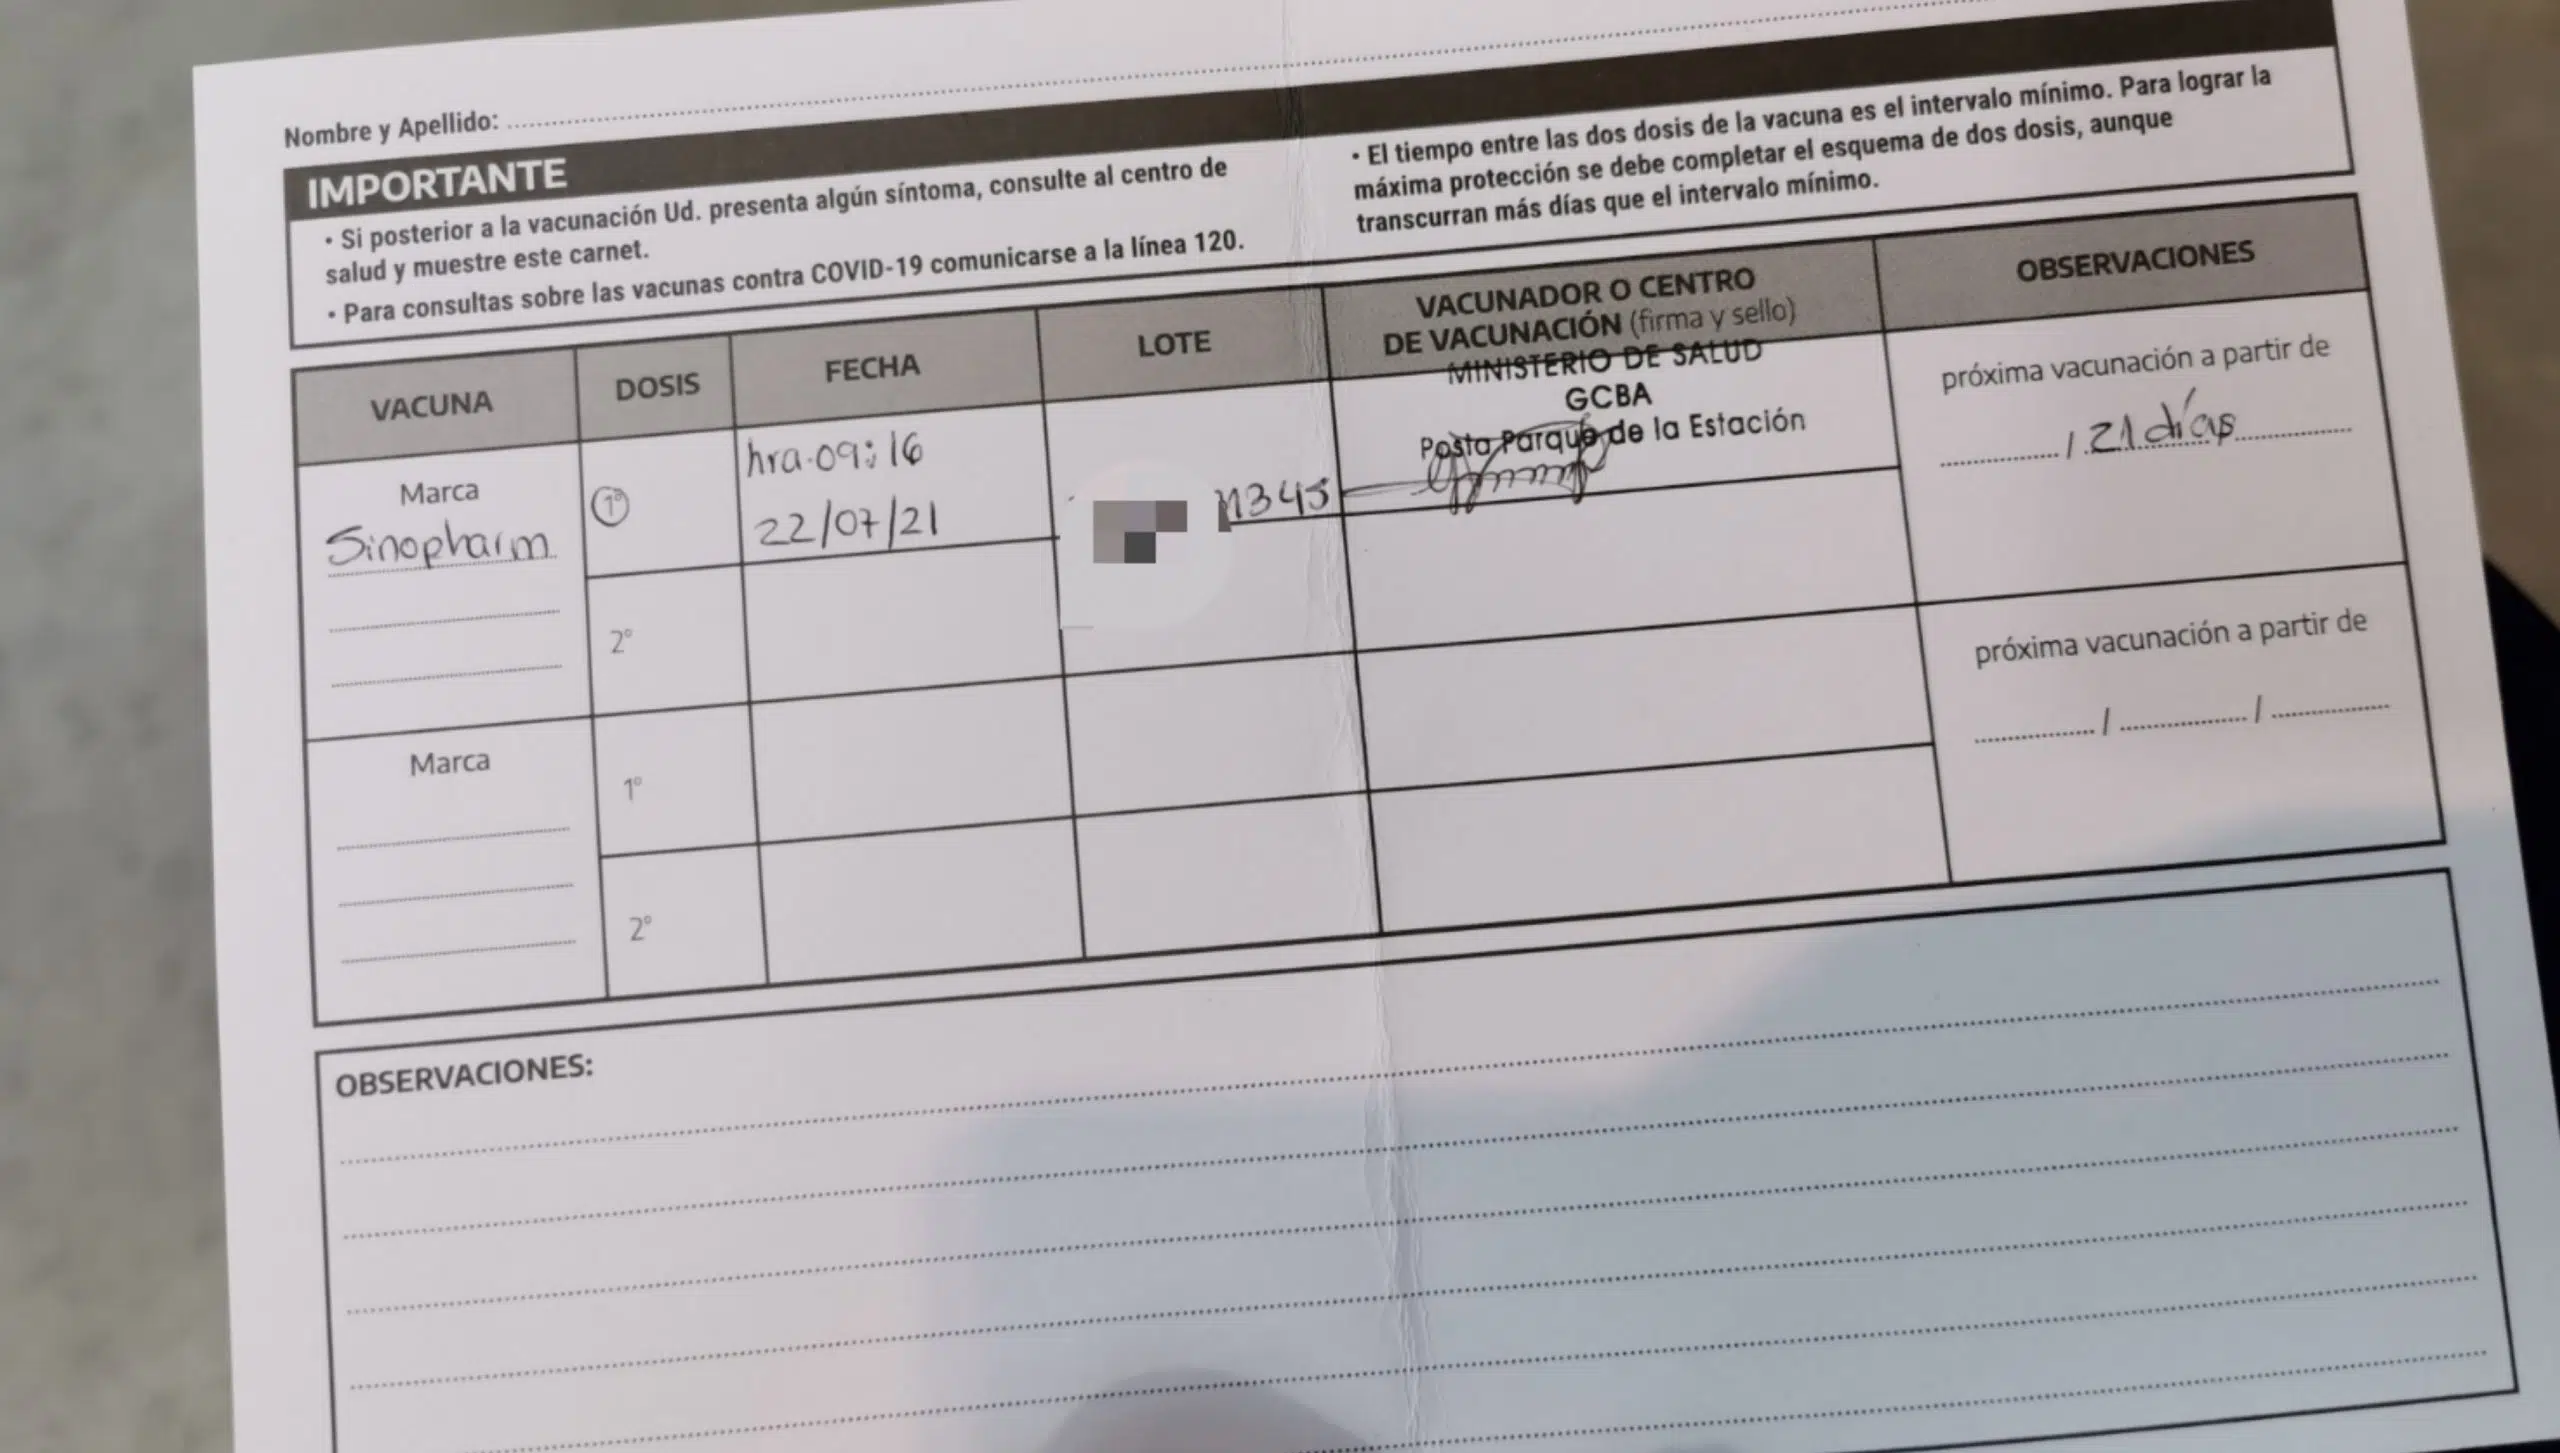 Nombre y Apellido:
IMPORTANTE
• Si posterior a la vacunación Ud. presenta algún síntoma, consulte al centro de
salud y muestre este carnet.
• Para consultas sobre las vacunas contra COVID-19 comunicarse a la línea 120.
• El tiempo entre las dos dosis de la vacuna es el intervalo mínimo. Para lograr la
máxima protección se debe completar el esquema de dos dosis, aunque
transcurran más días que el intervalo mínimo.
VACUNA
DOSIS
FECHA
LOTE
VACUNADOR O CENTRO
DE VACUNACIÓN (firma y sello)
OBSERVACIONES
Marca
Sinopharm
1º
hra. 09:16
22/07/21
1345
MINISTERIO DE SALUD
GCBA
Posta Parque de la Estación
próxima vacunación a partir de
/ 21 días
2º
Marca
1º
2º
próxima vacunación a partir de
/ /
OBSERVACIONES: